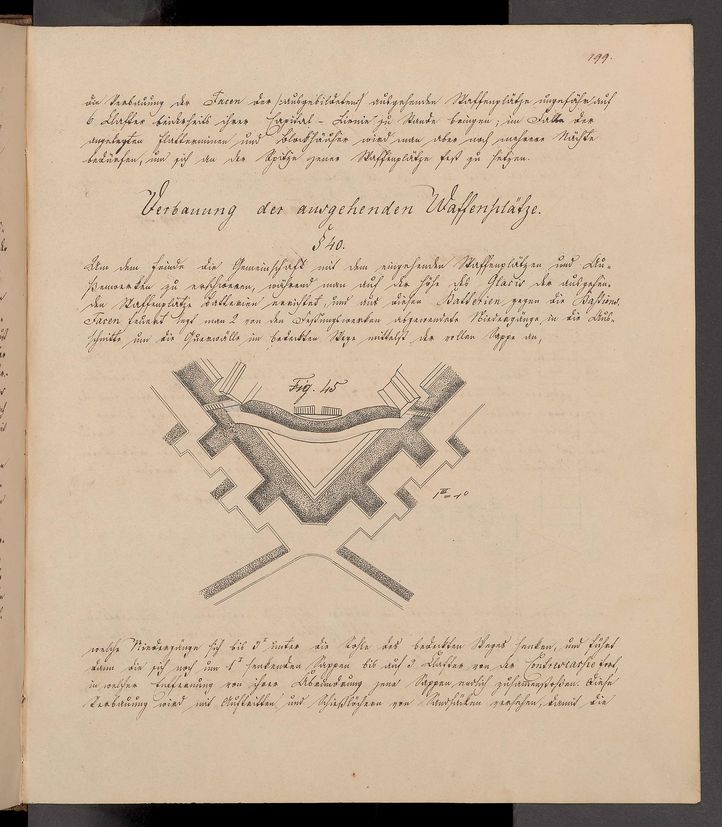 199.
die Verbauung der Facen der (:ausgebildeten:) ausgehenden Waffenplätze ungefähr auf
6 Klafter beiderseits ihrer Capital-Linie zu Stande bringen; im Falle der
angelegten Flatterminen und Blockhäuser wird man aber noch mehrere Nächte
bedürfen, um sich an der Spitze jener Waffenplätze fest zu setzen.
Verbauung der ausgehenden Waffenplätze.
§ 40.
Um dem Feinde die Gemeinschaft mit den eingehenden Waffenplätzen und Au-
ßenwerken zu erschweren, während man auf der Höhe des Glacis der ausgehen-
den Waffenplätze Batterien errichtet, und aus diesen Batterien gegen die Bastions-
Facen feuert legt man 2 von den Festungswerken abgewendete Niedergänge in die Aus-
schnitte um die Querwälle im bedeckten Wege mittelst der vollen Sappe an,
Fig. 45
welche Niedergänge sich bis 3' unter die Sohle des bedeckten Weges senken, und führt
dann die sich noch um 1' senkenden Sappen bis auf 3 Klafter von der Contrescarpe fort,
in welcher Entfernung von ihrer Abrundung jene Sappen endlich zusammenstoßen. Diese
Verbauung wird mit Auftritten und Schießlöchern von Sandsäcken versehen, damit die